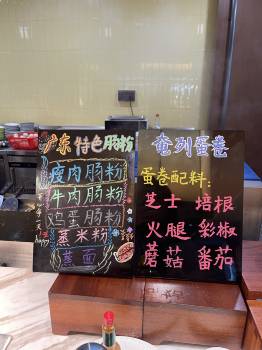 广东特色肠粉
瘦肉肠粉
牛肉肠粉
鸡蛋肠粉
蒸米粉
蒸面
happy
奄列蛋卷
蛋卷配料：
芝士 培根
火腿 彩椒
蘑菇 番茄